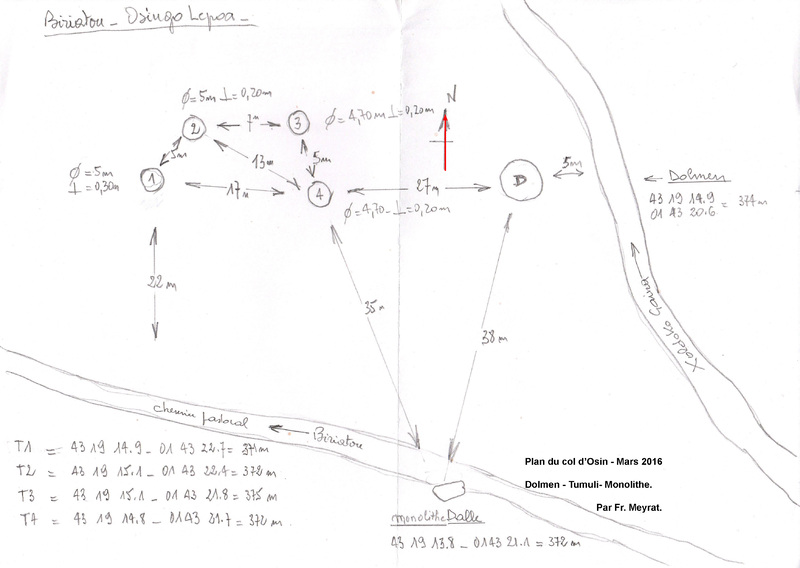 Biriatou - Osingo Lepoa -
N
Ø = 5m ⊥ = 0,20m
2
7m
3
Ø = 4,70m ⊥ = 0,20m
5m
13m
5m
Ø = 5m
⊥ = 0,30m
1
17m
4
27m
D
5m
← Dolmen
43 19 14.9
01 43 20.6 = 374m
Ø = 4,70 - ⊥ = 0,20m
22m
35m
38m
Xoldoko Gaina
chemin pastoral
Biriatou
T1 = 43 19 14.9 - 01 43 22.7 = 371m
T2 = 43 19 15.1 - 01 43 22.4 = 372m
T3 = 43 19 15.1 - 01 43 21.8 = 375m
T4 = 43 19 14.8 - 01 43 21.7 = 372m
monolithe Dalle
43 19 13.8 - 01 43 21.1 = 372m
Plan du col d'Osin - Mars 2016
Dolmen - Tumuli- Monolithe.
Par Fr. Meyrat.